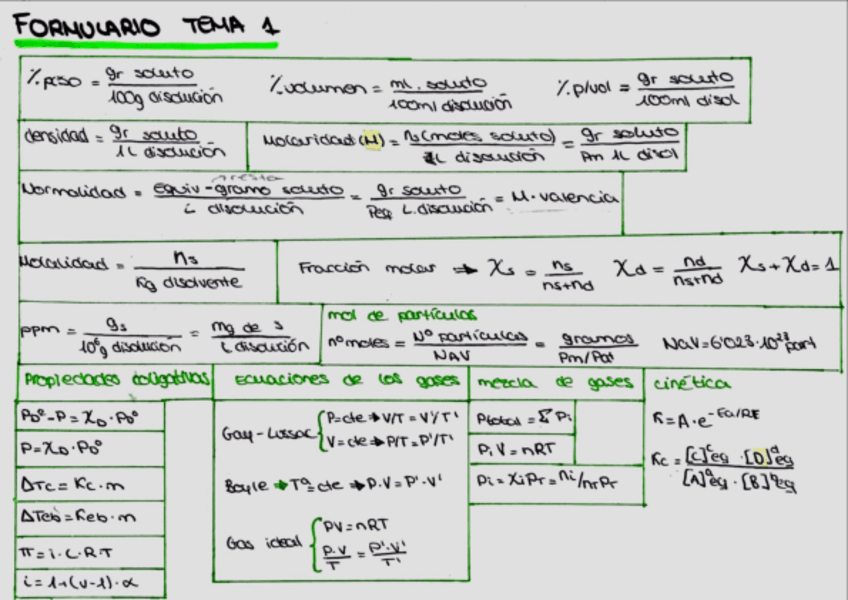 FORMULARIO TEMA 1
% peso = gr soluto / 100g disolución   % volumen = ml. soluto / 100ml disolución   % p/vol = gr soluto / 100ml disol
densidad = gr soluto / 1L disolución   Molaridad (M) = ns (moles soluto) / 1L disolución = gr soluto / Pm 1L disol
Normalidad = equiv-gramo soluto / L disolución = gr soluto / Peq L. disolución = M · valencia
Molalidad = ns / Kg disolvente   Fracción molar → Xs = ns / ns+nd   Xd = nd / ns+nd   Xs + Xd = 1
ppm = gs / 10⁶g disolución = mg de s / L disolución
mol de partículas
nº moles = Nº partículas / NAV = gramos / Pm/Pat   NAV = 6'023·10²³ part
Propiedades coligativas
P_D° - P = X_D · P_D°
P = X_D · P_D°
ΔTc = Kc · m
ΔTeb = Keb · m
π = i · C · R · T
i = 1 + (v-1) · α
Ecuaciones de los gases
Gay-Lussac { P = cte → V/T = V'/T'
V = cte → P/T = P'/T'
Boyle → Tª = cte → P·V = P'·V'
Gas ideal { PV = nRT
P·V / T = P'·V' / T'
mezcla de gases
Ptotal = Σ Pi
Pi V = nRT
Pi = Xi PT = ni/nT PT
cinética
K = A · e^-Ea/RT
Kc = [C]^c eq · [D]^d eq / [A]^a eq · [B]^b eq